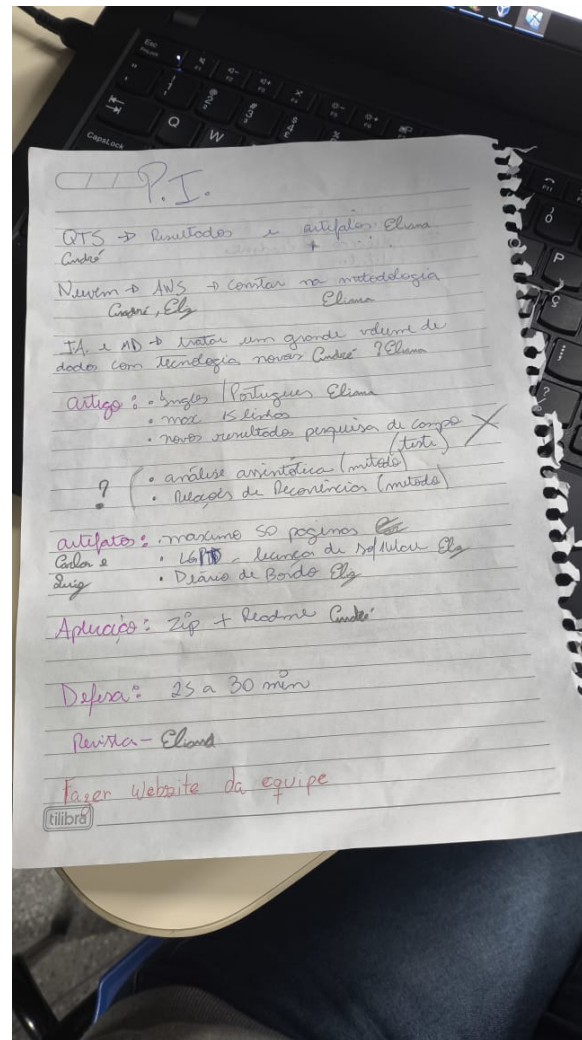 Esc
Q
W
CapsLock
P
Ç
P.I.
QTS → Resultados e artefatos Eliana
André +
Nuvem → AWS → constar na metodologia
André, Elz Eliana
IA. e MD → tratar um grande volume de
dados com tecnologia novas André ? Eliana
artigo: • Ingles / Portugues Eliana
• max 15 linhas
• novos resultados pesquisa de campo X
(teste)
? • análise assintótica (método)
• Relações de Recorrências (metodo)
artefatos: • maximo 50 paginas
Carlos e • LGPD - licença de software Elz
Luiz • Diário de Bordo Elz
Aplicação: Zip + Readme André
Defesa: 25 a 30 min
Revista - Eliana
Fazer Website da equipe
tilibra